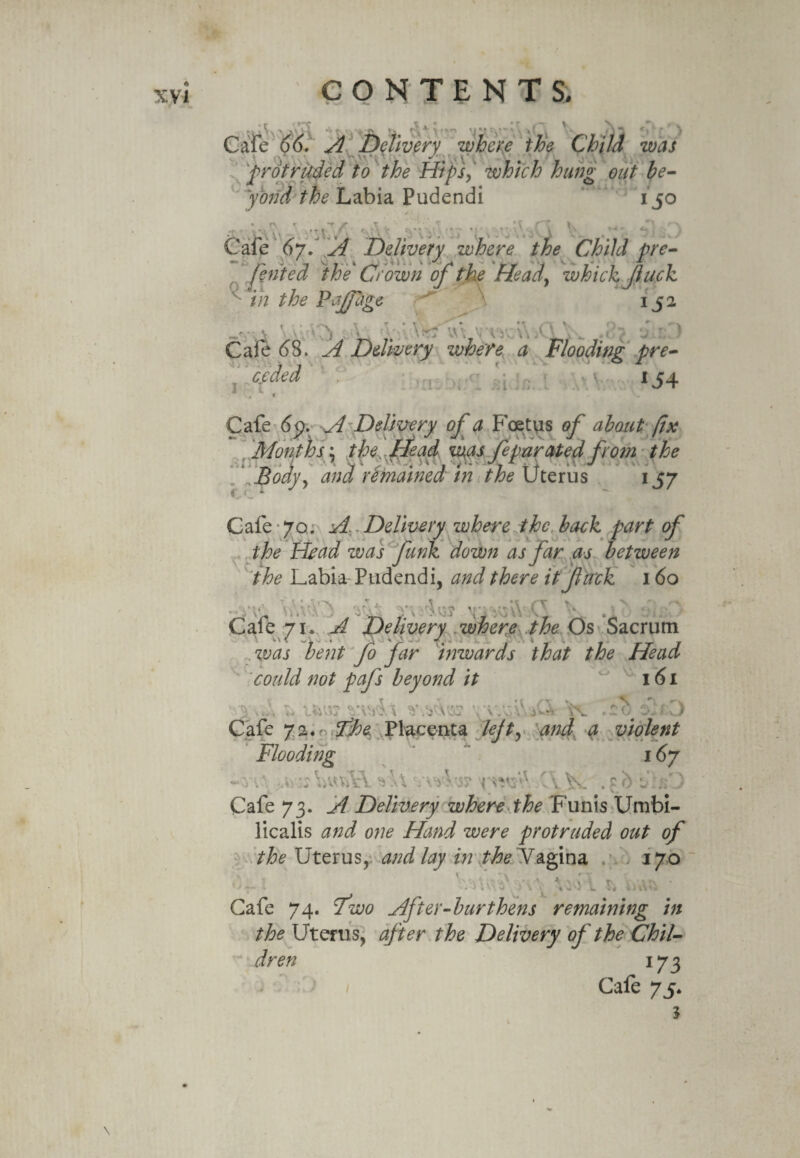 xvi CONTENTS.
Cafe 66. A Delivery where the Child was
protruded to the Hips, which hung out be-
yond the Labia Pudendi 150
Cafe 67. A Delivery where the Child pre-
fented the Crown of the Head, which ftuck
in the Paffage 152
Cafe 68. A Delivery where a Flooding pre-
ceded 154
Cafe 69. A Delivery of a Fœtus of about fix
Months; the Head was feparated from the
Body, and remained in the Uterus 157
Cafe 70. A Delivery where the back part of
the Head was funk down as far as between
the Labia Pudendi, and there it ftuck 160
Cafe 71. A Delivery where the Os Sacrum
was bent fo far inwards that the Head
could not pafs beyond it 161
Cafe 72. The Placenta left, and a violent
Flooding 167
Cafe 73. A Delivery where the Funis Umbi-
licalis and one Hand were protruded out of
the Uterus, and lay in the Vagina 170
Cafe 74. Two After-burthens remaining in
the Uterus, after the Delivery of the Chil-
dren 173
Cafe 75.
3